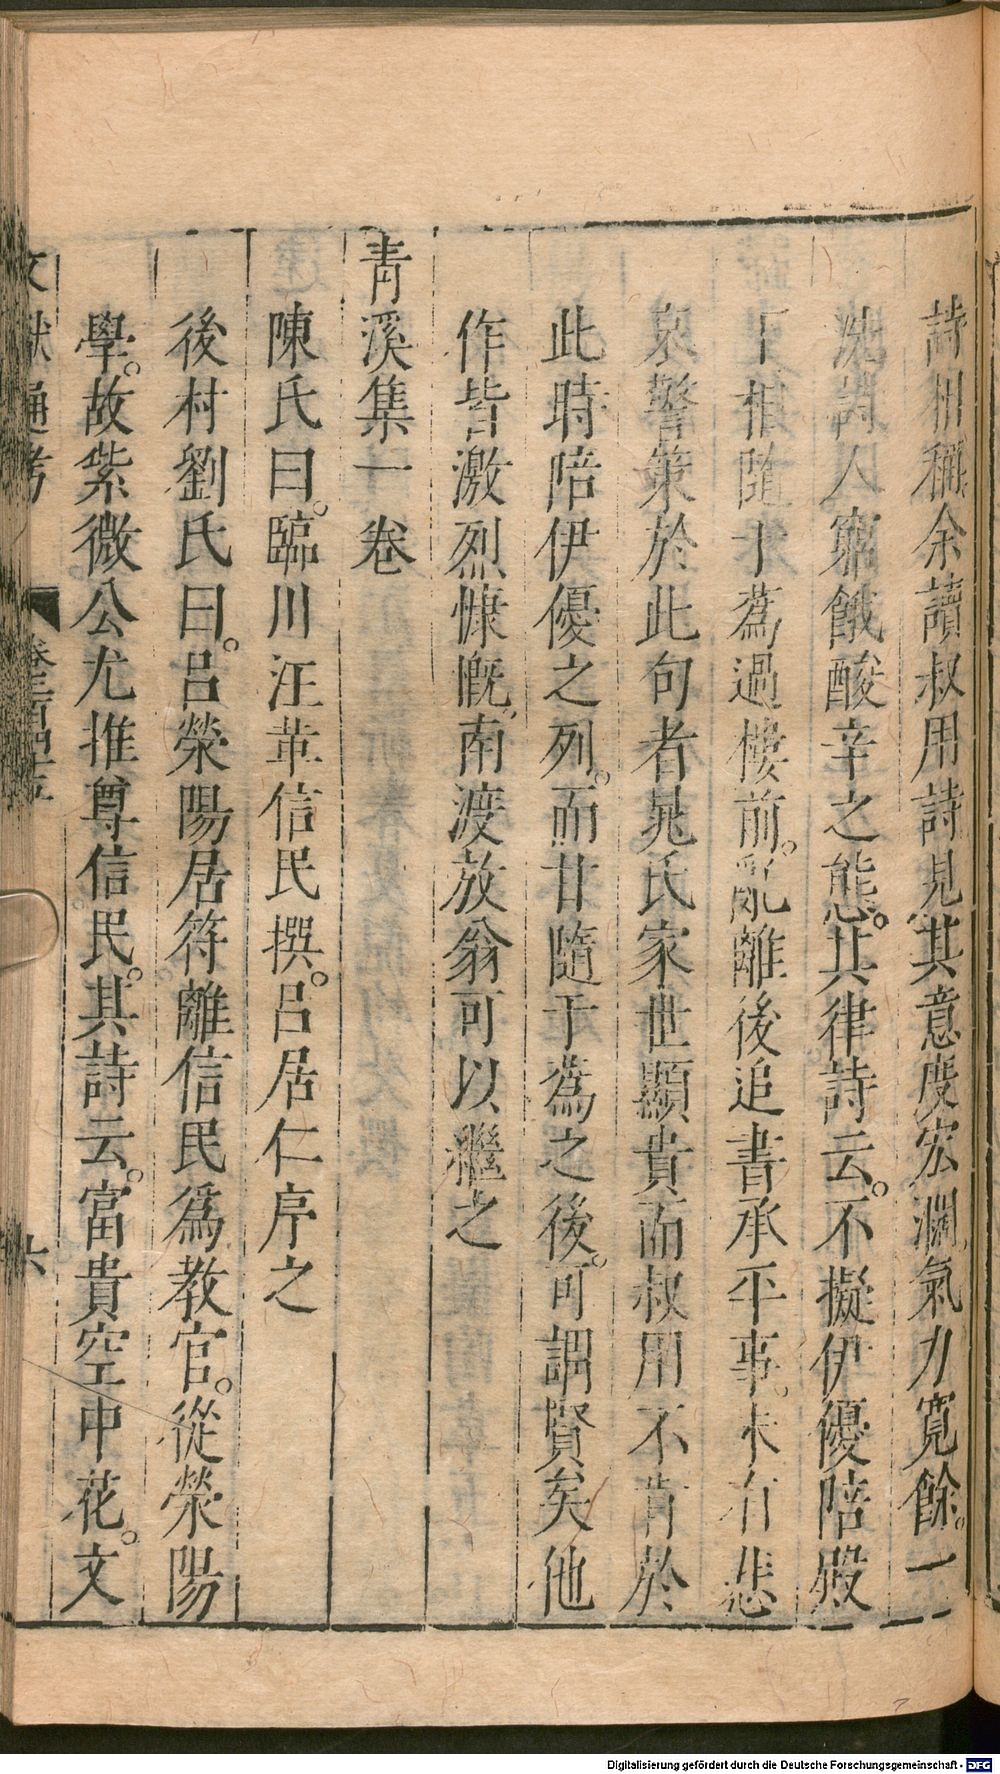 詩相稱余讀叔用詩見其意度宏濶氣力寬餘。一
洗詩人窮餓酸辛之態。其律詩云。不擬伊優陪殿
下相隨于蔿過樓前。亂離後追書承平事。未有悲
哀警策於此句者晁氏家世顯貴而叔用不肯於
此時陪伊優之列。而甘隨于蔿之後。可謂賢矣他
作皆激烈慷慨。南渡放翁可以繼之
青溪集一卷
陳氏曰。臨川汪革信民撰。呂居仁序之
後村劉氏曰。呂滎陽居符離信民爲教官。從滎陽
學。故紫微公尤推尊信民。其詩云。富貴空中花。文
文獻通考 卷二百四十五 六
Digitalisierung gefördert durch die Deutsche Forschungsgemeinschaft - DFG